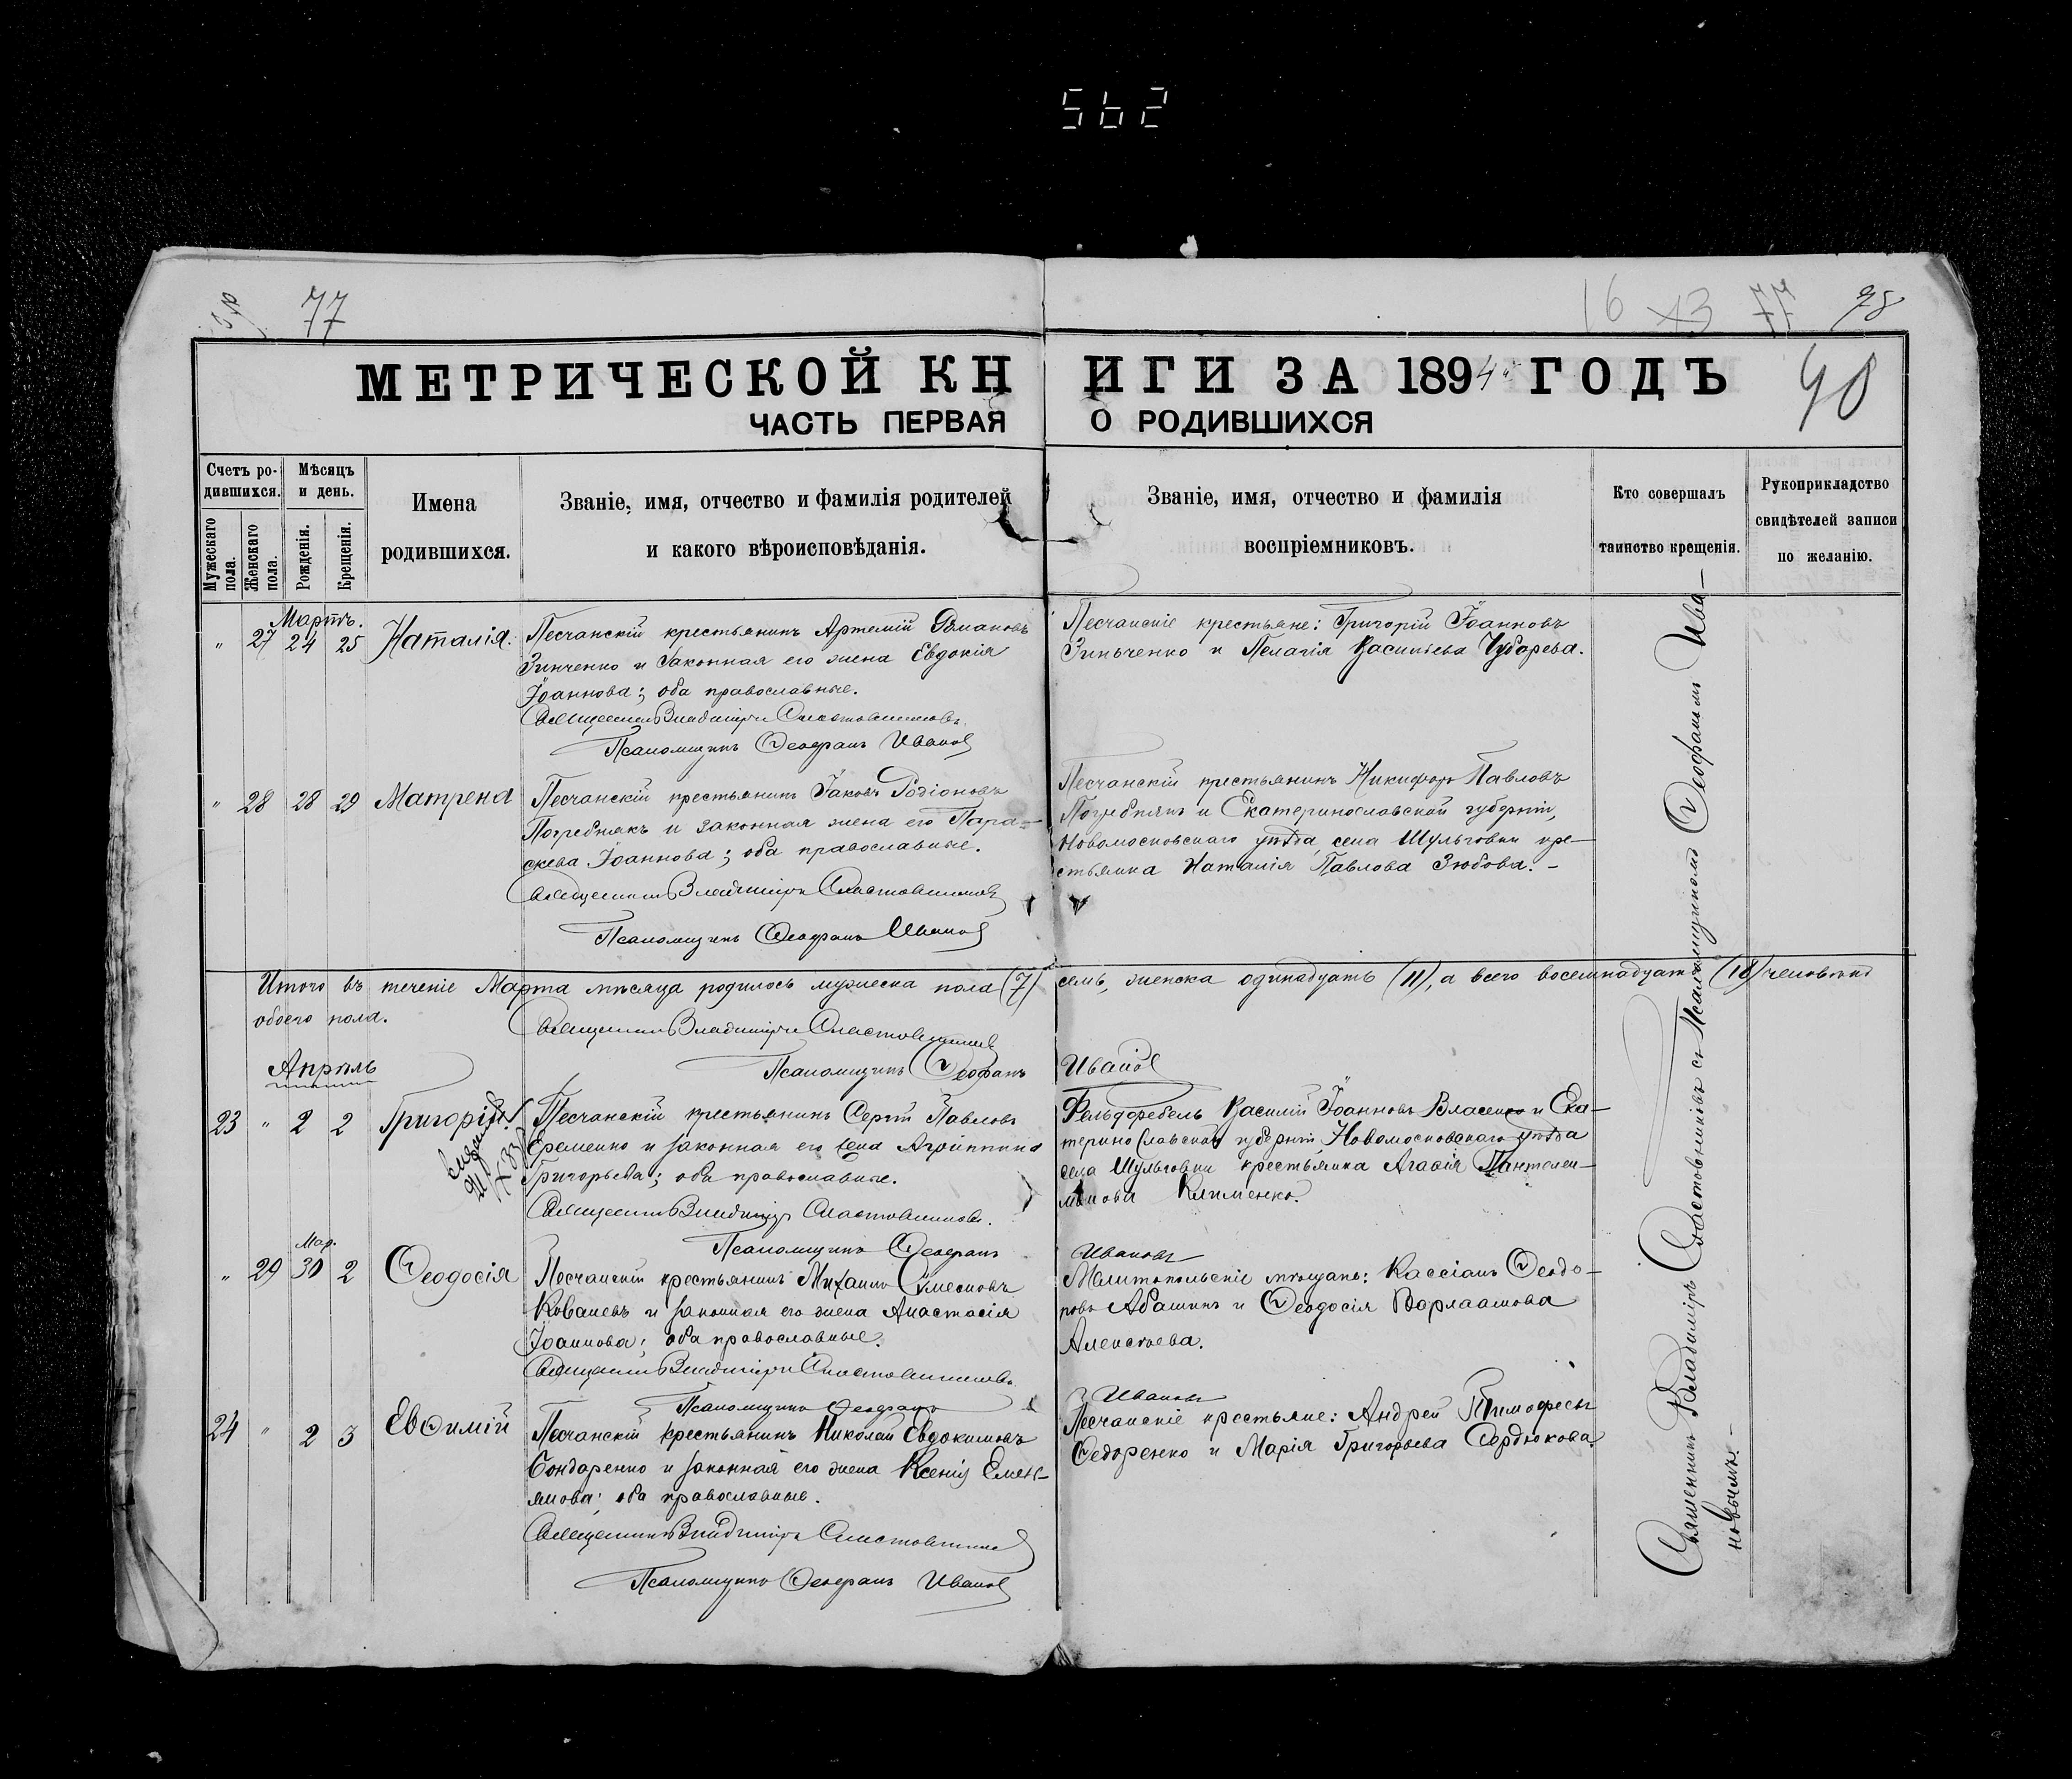 562
77
16 43 77 78
МЕТРИЧЕСКОЙ КНИГИ ЗА 1894 ГОДЪ
40
ЧАСТЬ ПЕРВАЯ О РОДИВШИХСЯ
Счетъ родившихся.
Мужескаго пола.
Женскаго пола.
Мѣсяцъ и день.
Рожденія.
Крещенія.
Имена родившихся.
Званіе, имя, отчество и фамилія родителей
и какого вѣроисповѣданія.
Званіе, имя, отчество и фамилія
воспріемниковъ.
Кто совершалъ
таинство крещенія.
Рукоприкладство
свидѣтелей записи
по желанію.
Мартъ.
" 27 24 25 Наталія.
Песчанскій крестьянинъ Артемій Романовъ
Зинченко и законная его жена Евдокія
Іоаннова; оба православные.
Священникъ Владиміръ Сластовниковъ
Псаломщикъ Ѳеофанъ Ивановъ
Песчанскіе крестьяне: Григорій Іоанновъ
Зинченко и Пелагія Васильева Чубарева.
" 28 28 29 Матрена
Песчанскій крестьянинъ Іаковъ Родіоновъ
Погребнякъ и законная жена его Пара-
скева Іоаннова; оба православные.
Священникъ Владиміръ Сластовниковъ
Псаломщикъ Ѳеофанъ Ивановъ
Песчанскій крестьянинъ Никифоръ Павловъ
Погребнякъ и Екатеринославской губерніи,
Новомосковскаго уѣзда села Шульговки кре-
стьянка Наталія Павлова Зюбова. -
Итого въ теченіе Марта мѣсяца родилось мужеска пола (7) семь, женска одинадцать (11), а всего восемнадцать (18) человѣкъ
обоего пола.
Священникъ Владиміръ Сластовниковъ
Псаломщикъ Ѳеофанъ Ивановъ
Апрѣль
23 " 2 2 Григорій
Песчанскій крестьянинъ Сергій Павловъ
Еременко и законная его жена Агриппина
Григорьева; оба православные.
Священникъ Владиміръ Сластовниковъ.
Псаломщикъ Ѳеофанъ Ивановъ
Фельдфебель Василій Іоанновъ Власенко и Ека-
теринославской губерніи Новомосковскаго уѣзда
села Шульговки крестьянка Агафія Пантелеи-
монова Клименко.
Мар.
" 29 30 2 Ѳеодосія
Песчанскій крестьянинъ Михаилъ Симеоновъ
Ковалевъ и законная его жена Анастасія
Іоаннова; оба православные.
Священникъ Владиміръ Сластовниковъ
Псаломщикъ Ѳеофанъ Ивановъ
Мелитопольскіе мѣщане: Кассіанъ Ѳеодо-
ровъ Абашинъ и Ѳеодосія Варлаамова
Алексѣева.
24 " 2 3 Евѳимій
Песчанскій крестьянинъ Николай Евдокимовъ
Бондаренко и законная его жена Ксенія Емель-
янова; оба православные.
Священникъ Владиміръ Сластовниковъ
Псаломщикъ Ѳеофанъ Ивановъ
Песчанскіе крестьяне: Андрей Тимофеевъ
Ѳедоренко и Марія Григорьева Сердюкова.
Священникъ Владиміръ Сластовниковъ съ Псаломщикомъ Ѳеофаномъ Ива-
новымъ. -